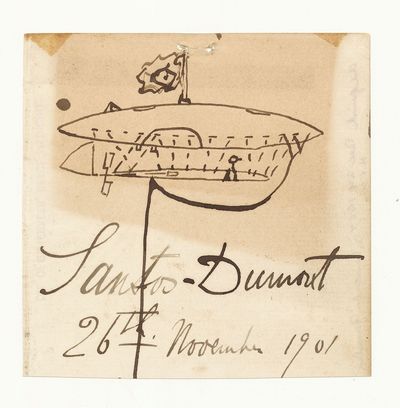 Santos-Dumont
26th. November 1901